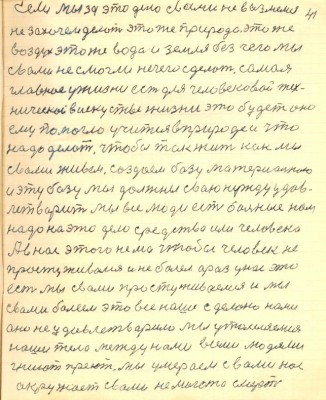 Если мы за это дело с вами не возьмемся 41
не захочем делать это же природа это же
воздух это же вода и земля без чего мы
с вами не смогли нечего сделать, самая
главное у жизни ест для человека в тех-
нической в искустве жизни это будет оно
ему помогло учится в природе и что
надо делат, чтобы так жит как мы
с вами живем, создаем базу материально
и эту базу мы должны сваю нужду удов-
летварит мы все люди ест
надо на это дело средства или человека
А в нас этого нема чтобы человек не
простуживался и не болел а раз у нас это
ест мы с вами простуживаемся и мы
с вами болеем это все наше сделано нами
ано не удовлетварило мы утомляемся
наше тело между нами всеми людями
гниют преют. мы умераем с вами нас
окружает с вами на месте смерть